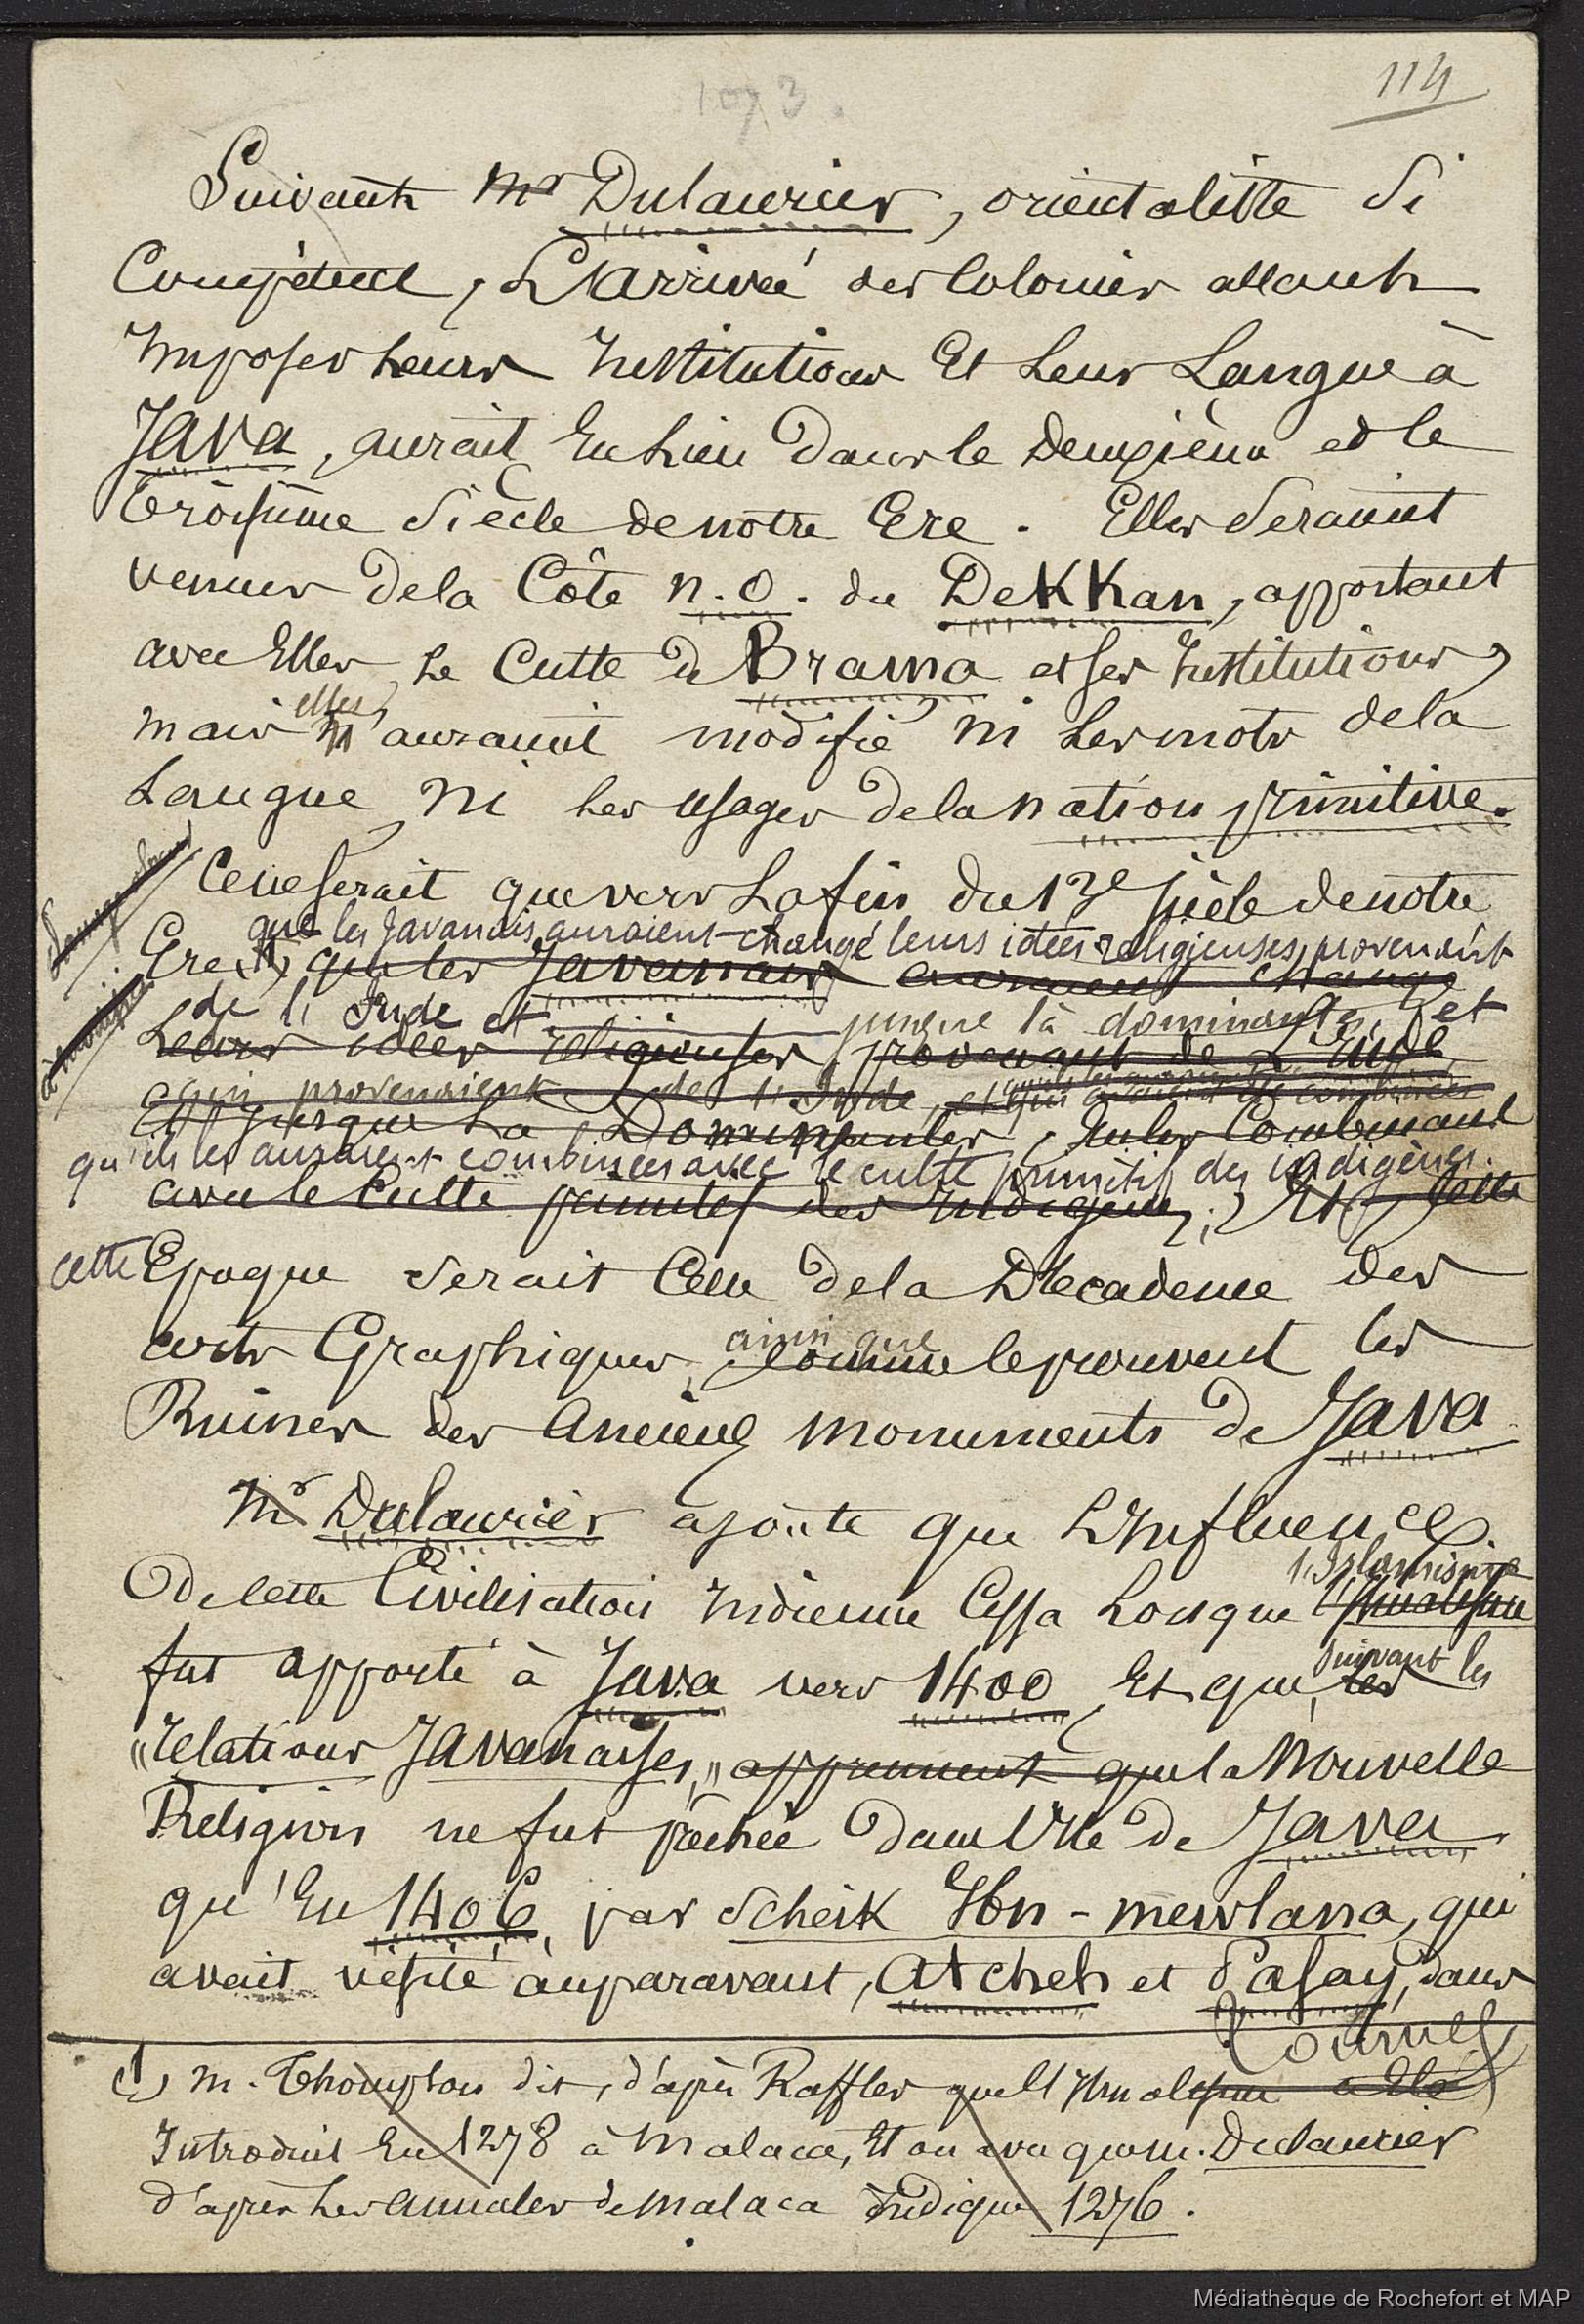 1073.
114
Suivant Mr Dulaurier, orientaliste Si
Compétent, L'arrivée des Colonies allant
Imposer Leurs Institutions Et Leur Langue à
Java, aurait Eu Lieu Dans le Deuxième et le
Troisième Siècle de notre Ere. Elles Seraient
venues De la Côte N.O. du DeKKan, apportant
avec Elles Le Culte de Brama et Ses Institutions,
elles
mais n'auraient modifié ni Les mots de la
Langue, ni Les usages de la nation primitive.
Ce ne Serait que vers La fin du 13e Siècle de notre
que les Javanais auraient changé leurs idées religieuses, provenant
Ere (1), que les Javanais auraient changé
de l'Inde et jusque là dominantes, et
Leurs idées religieuses provenant de L'Inde
qui provenaient de l'Inde, et qui avaient été combinées
Et jusque La Dominantes, En les Combinant
qu'ils les auraient combinées avec le culte primitif des indigènes.
avec le Culte primitif des Indigènes; Et Cette
cette Epoque Serait Celle De la Décadence des
ainsi que
arts Graphiques, Comme le prouvent les
Ruines des Anciens monuments de Java
Mr Dulaurier ajoute que L'Influence
De Cette Civilisation Indienne Cessa Lorsque
l'Islamisme
fut apporté à Java vers 1400, Et que,
suivant les
les
"relations Javanaises," apprennent que la Nouvelle
Religion ne fut prêchée Dans l'Ile de Java
qu'En 1406, par Scheik Ibn-mewlana, qui
avait visité auparavant, Atcheh et Pasay, dans
Tournez
(1) M. Thompson dit, d'après Raffles que l'Ismalisme a Eté
Introduit En 1278 à Malaca, Et on a vu que M. Dulaurier
D'après Les Annales de Malaca Indique 1276.
Médiathèque de Rochefort et MAP